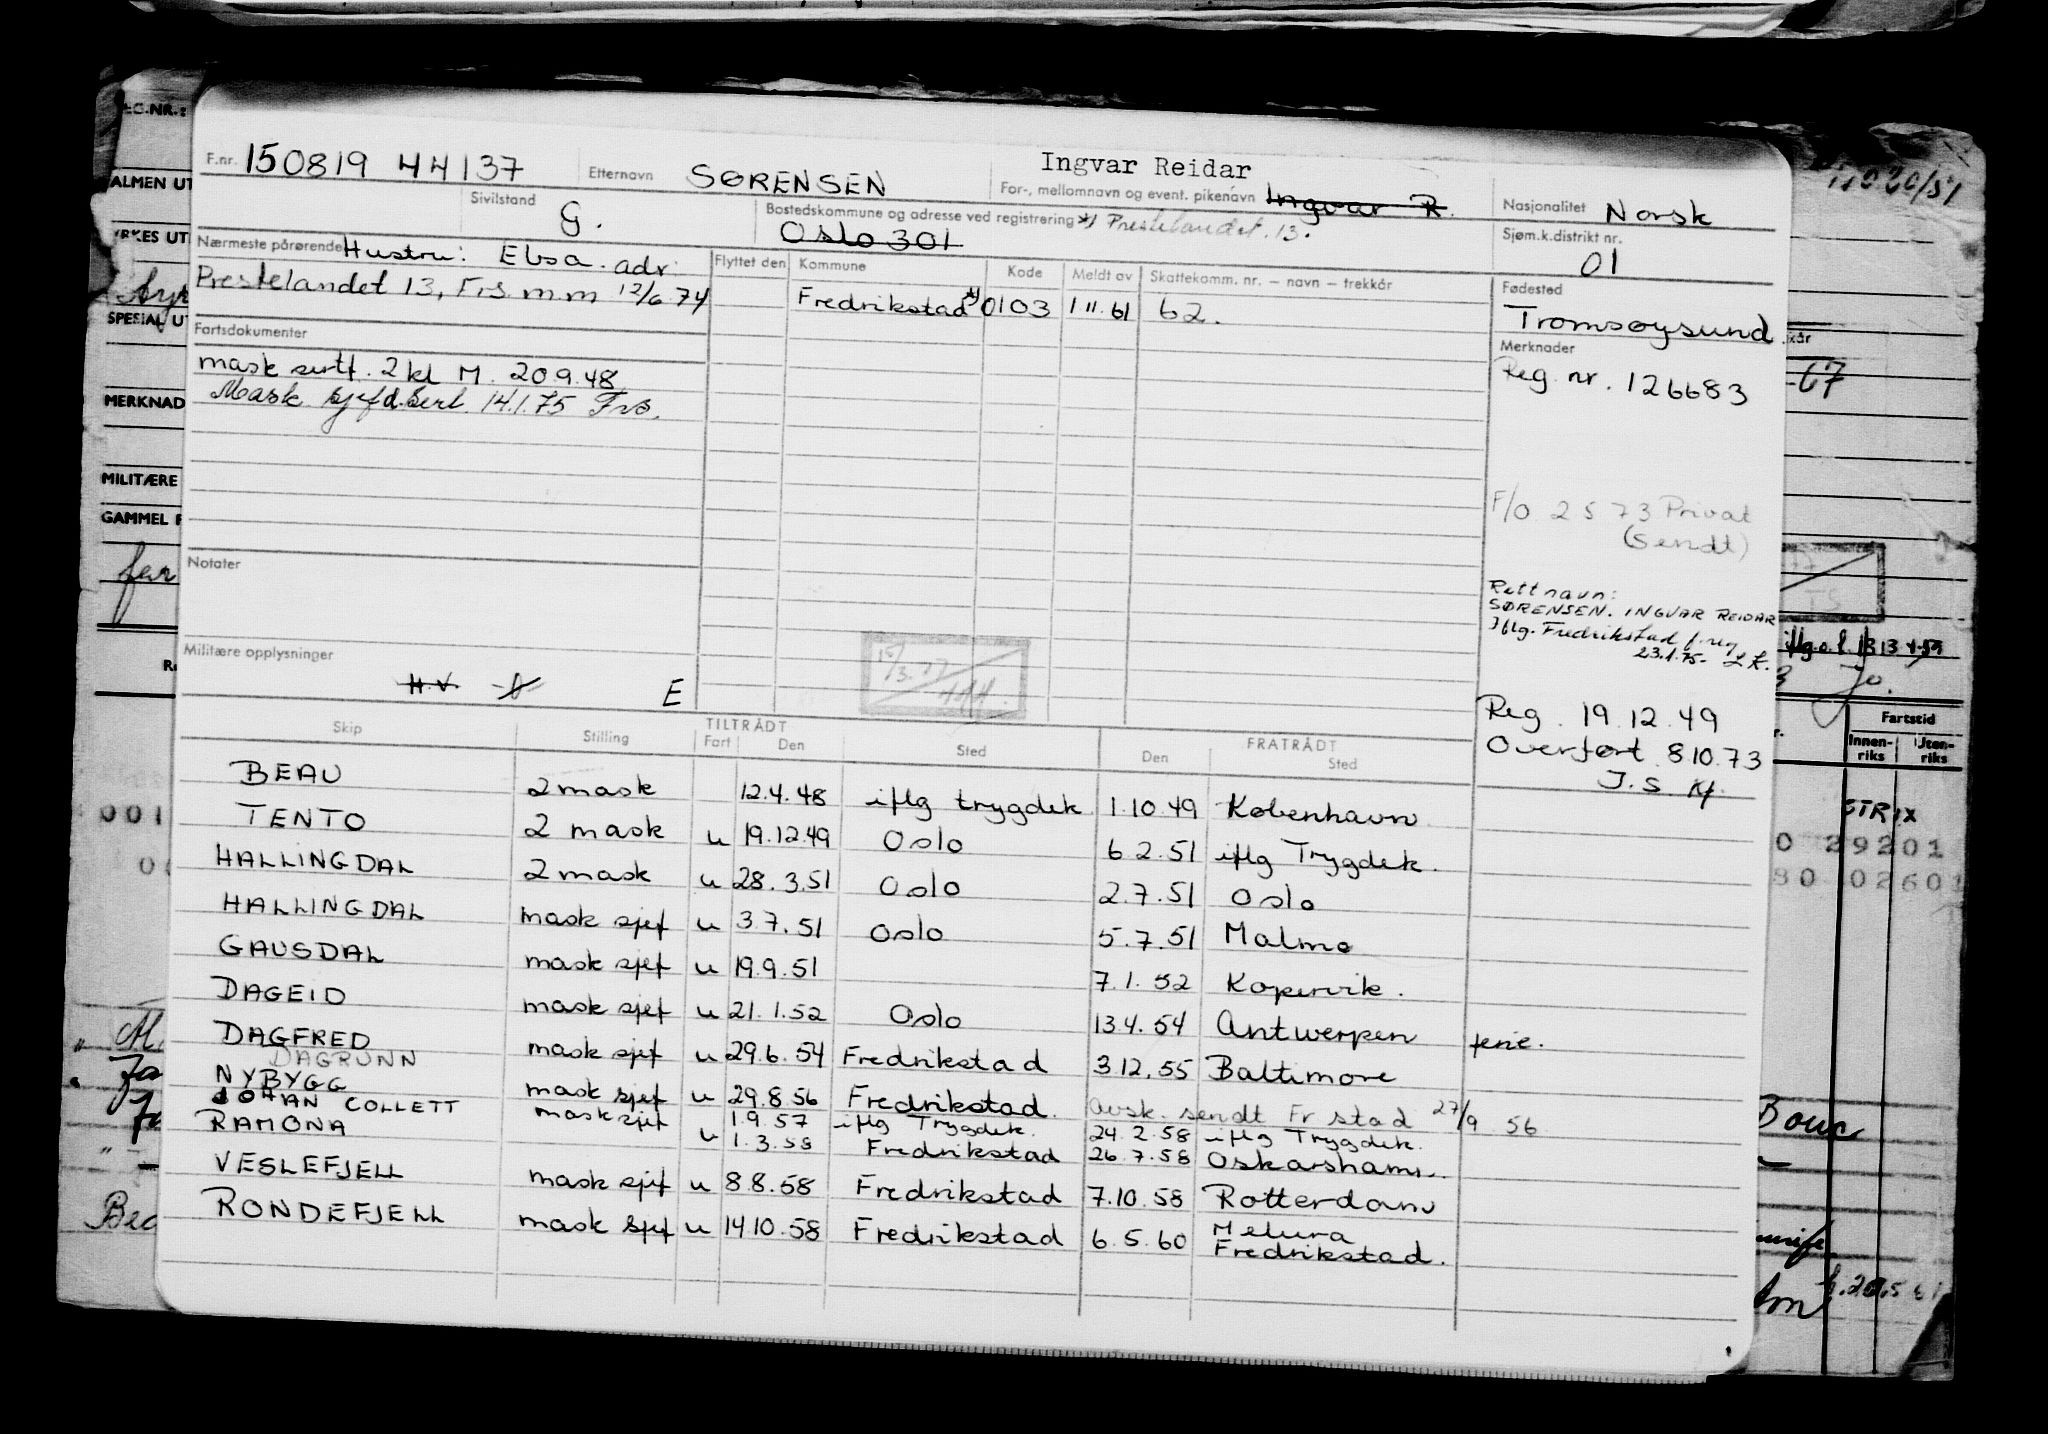 F.nr. 150819 44137 Etternavn SØRENSEN Ingvar Reidar
For-, mellomnavn og event. pikenavn Ingvar R. Nasjonalitet Norsk
Sivilstand G. Bostedskommune og adresse ved registrering *) Prestelandet 13.
Oslo 301
Sjøm.k.distrikt nr. 01
Nærmeste pårørende Hustru: Ebsa. adr:
Prestelandet 13, Frs. m.m 12/6.74
Flyttet den Kommune Kode Meldt av Skattekomm. nr. – navn – trekkår
Fredrikstad *) 0103 1 11.61 62.
Fødested
Tromsøysund
Fartsdokumenter
mask sertf. 2 kl M. 20.9.48
Mask sjefd.sert. 14.1.75 Frs.
Merknader
Reg. nr. 126683
F/O 2573 Privat
(sendt)
Rett navn:
SØRENSEN. INGVAR REIDAR
Iflg. Fredrikstad f.reg
23.1.75-
Reg. 19.12.49
Overført 8.10.73
J.S.
Notater
Militære opplysninger
H.V. E
15/3.77
Skip Stilling TILTRÅDT Fart Den Sted FRATRÅDT Den Sted
BEAU 2 mask 12.4.48 iflg trygdek 1.10.49 København
TENTO 2 mask u 19.12.49 Oslo 6.2.51 iflg Trygdek.
HALLINGDAL 2 mask u 28.3.51 Oslo 2.7.51 Oslo
HALLINGDAL mask sjef u 3.7.51 Oslo 5.7.51 Malmø
GAUSDAL mask sjef u 19.9.51 7.1.52 Kopervik.
DAGEID mask sjef u 21.1.52 Oslo 13.4.54 Antwerpen ferie.
DAGFRED mask sjef u 29.6.54 Fredrikstad 3.12.55 Baltimore
DAGRUNN
NYBYGG mask sjef u 29.8.56 Fredrikstad. Avsk. sendt Fr stad 27/9 56
JOHAN COLLETT mask sjef 1.9.57 iflg Trygdek. 24.2.58 iflg Trygdek.
RAMONA u 1.3.58 Fredrikstad 26.7.58 Oskarshamn.
VESLEFJELL mask sjef u 8.8.58 Fredrikstad 7.10.58 Rotterdam
RONDEFJELL mask sjef u 14.10.58 Fredrikstad 6.5.60 Melura
Fredrikstad.
ALMEN UT
YRKES UT
SPESIAL UT
MERKNAD
MILITÆRE
GAMMEL F
Fartstid
Innen-riks Uten-riks
STRIX
0 29201
80 02601
001
Bouc